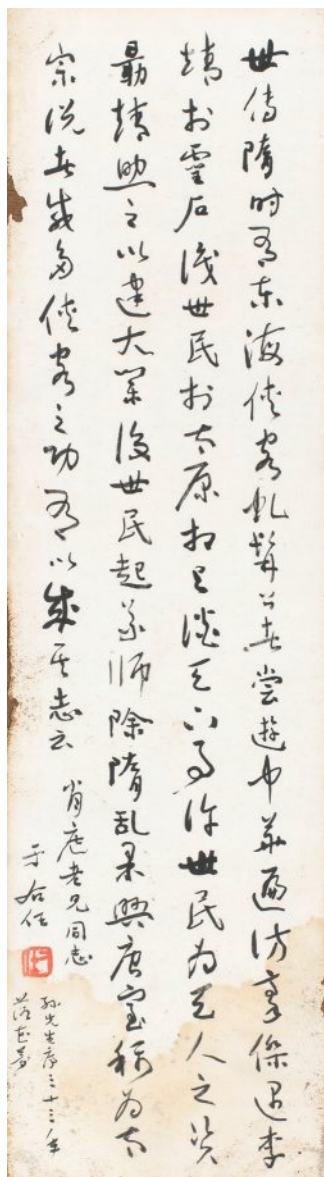 世傳隋时有東海俠客虬髯公者嘗遊中華遍访豪傑遇李
靖於靈石識世民於太原相與談天下事許世民為天人之資
勗靖助之以建大業後世民起義師除隋乱果興唐室稱為太
宗說者咸多俠客之功有以成其志云
老兄同志
于右任
孫先生序三十三年
落花夢